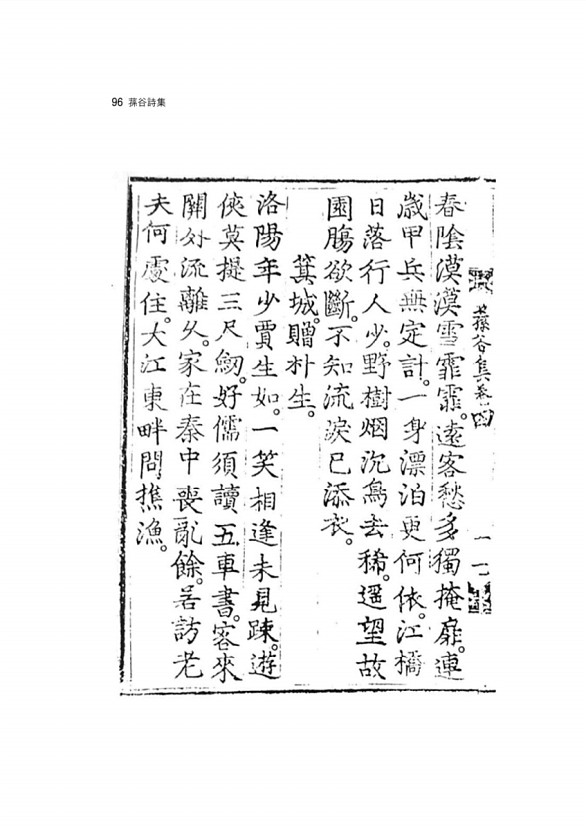 96 蓀谷詩集
蓀谷集卷四
十一
春陰漠漠雪霏霏。遠客愁多獨掩扉。連
歲甲兵無定計。一身漂泊更何依。江橋
日落行人少。野樹烟沉鳥去稀。遥望故
園膓欲斷。不知流淚已添衣。
箕城。贈朴生。
洛陽年少賈生如。一笑相逢未見踈。遊
俠莫提三尺劒。好儒須讀五車書。客來
關外流離久。家在秦中喪亂餘。若訪老
夫何處住。大江東畔問樵漁。